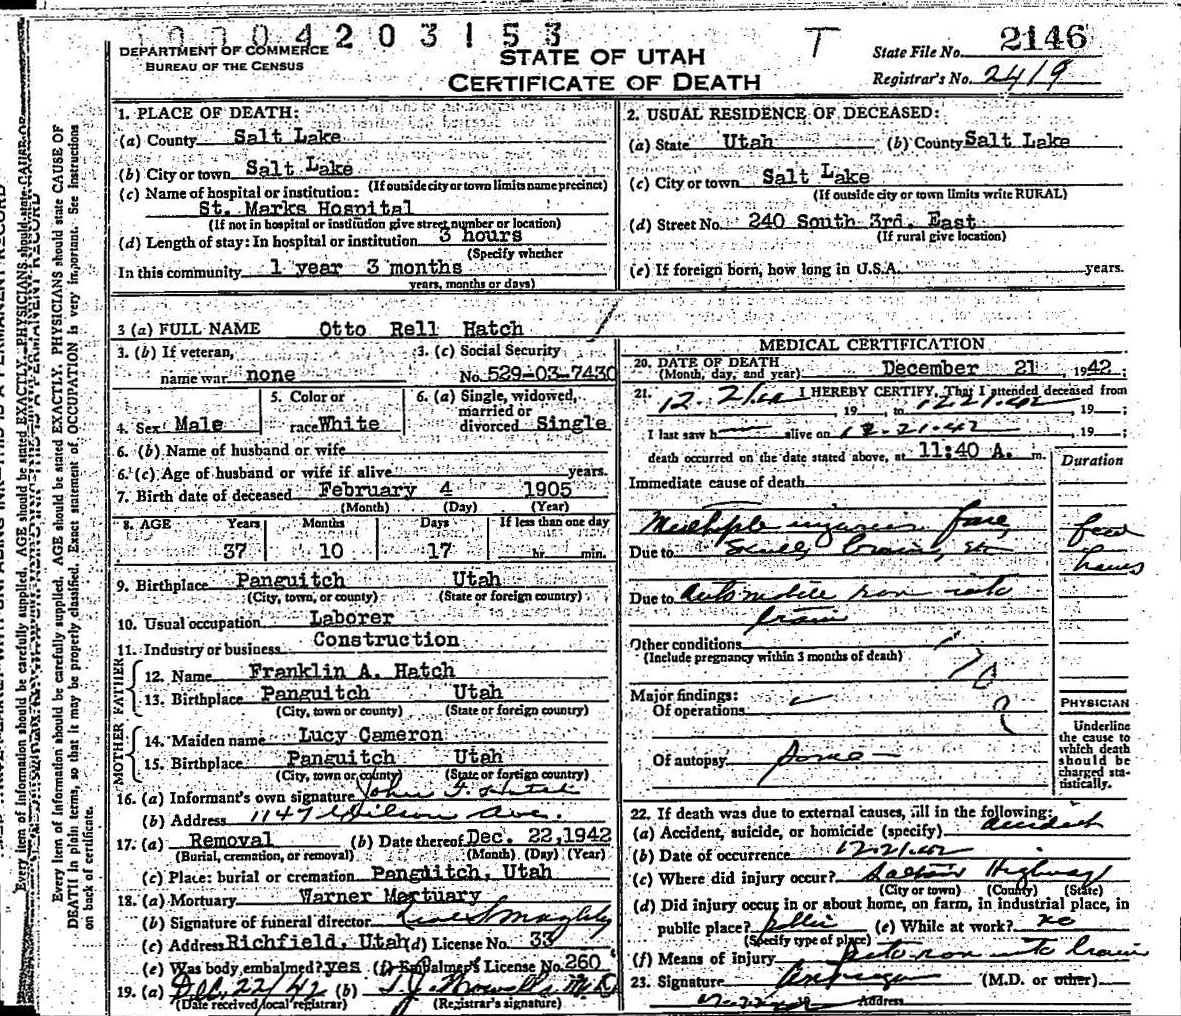 0004203153
DEPARTMENT OF COMMERCE
BUREAU OF THE CENSUS
STATE OF UTAH
CERTIFICATE OF DEATH
T
State File No. 2146
Registrar's No. 2419
Every item of information should be carefully supplied. AGE should be stated EXACTLY. PHYSICIANS should state CAUSE OF
DEATH in plain terms, so that it may be properly classified. Exact statement of OCCUPATION is very important. See instructions
on back of certificate.
1. PLACE OF DEATH:
(a) County Salt Lake
(b) City or town Salt Lake
(If outside city or town limits name precinct)
(c) Name of hospital or institution:
St. Marks Hospital
(If not in hospital or institution give street number or location)
(d) Length of stay: In hospital or institution 3 hours
(Specify whether
In this community 1 year 3 months
years, months or days)
2. USUAL RESIDENCE OF DECEASED:
(a) State Utah (b) County Salt Lake
(c) City or town Salt Lake
(If outside city or town limits write RURAL)
(d) Street No. 240 South 3rd. East
(If rural give location)
(e) If foreign born, how long in U.S.A. years.
3 (a) FULL NAME Otto Rell Hatch
3. (b) If veteran, name war none
3. (c) Social Security No. 529-03-7430
4. Sex Male
5. Color or race White
6. (a) Single, widowed, married or divorced Single
6. (b) Name of husband or wife
6. (c) Age of husband or wife if alive years.
7. Birth date of deceased February 4 1905
(Month) (Day) (Year)
8. AGE Years Months Days If less than one day
37 10 17 hr. min.
9. Birthplace Panguitch Utah
(City, town, or county) (State or foreign country)
10. Usual occupation Laborer
11. Industry or business Construction
FATHER
12. Name Franklin A. Hatch
13. Birthplace Panguitch Utah
(City, town or county) (State or foreign country)
MOTHER
14. Maiden name Lucy Cameron
15. Birthplace Panguitch Utah
(City, town or county) (State or foreign country)
16. (a) Informant's own signature John F. Hatch
(b) Address 1147 Wilson Ave.
17. (a) Removal (b) Date thereof Dec. 22, 1942
(Burial, cremation, or removal) (Month) (Day) (Year)
(c) Place: burial or cremation Panguitch, Utah
18. (a) Mortuary Warner Mortuary
(b) Signature of funeral director
(c) Address Richfield, Utah (d) License No. 33
(e) Was body embalmed? yes (f) Embalmer's License No. 260
19. (a) Dec. 22/42 (b) T. J. Howells M.D.
(Date received local registrar) (Registrar's signature)
MEDICAL CERTIFICATION
20. DATE OF DEATH
(Month, day, and year) December 21, 1942;
21. I HEREBY CERTIFY, That I attended deceased from
12-21-42, 19 to 12-21-42, 19 ;
I last saw h alive on 12-21-42, 19 ;
death occurred on the date stated above, at 11:40 A. m.
Duration
Immediate cause of death
Multiple injuries face, few
Due to Skull, brain, etc hours
Due to Automobile ran into
train
Other conditions
(Include pregnancy within 3 months of death)
Major findings:
Of operations
Of autopsy
PHYSICIAN
Underline
the cause to
which death
should be
charged sta-
tistically.
22. If death was due to external causes, fill in the following:
(a) Accident, suicide, or homicide (specify) Accident
(b) Date of occurrence 12-21-42
(c) Where did injury occur? Saltair Highway
(City or town) (County) (State)
(d) Did injury occur in or about home, on farm, in industrial place, in
public place? public (e) While at work? no
(Specify type of place)
(f) Means of injury Auto ran into train
23. Signature (M.D. or other)
Address